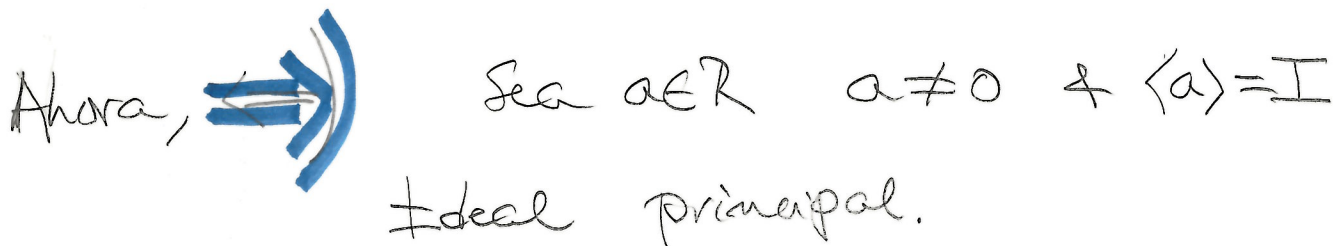 Ahora, ⇒) Sea a∈R a≠0 & ⟨a⟩=I
Ideal principal.